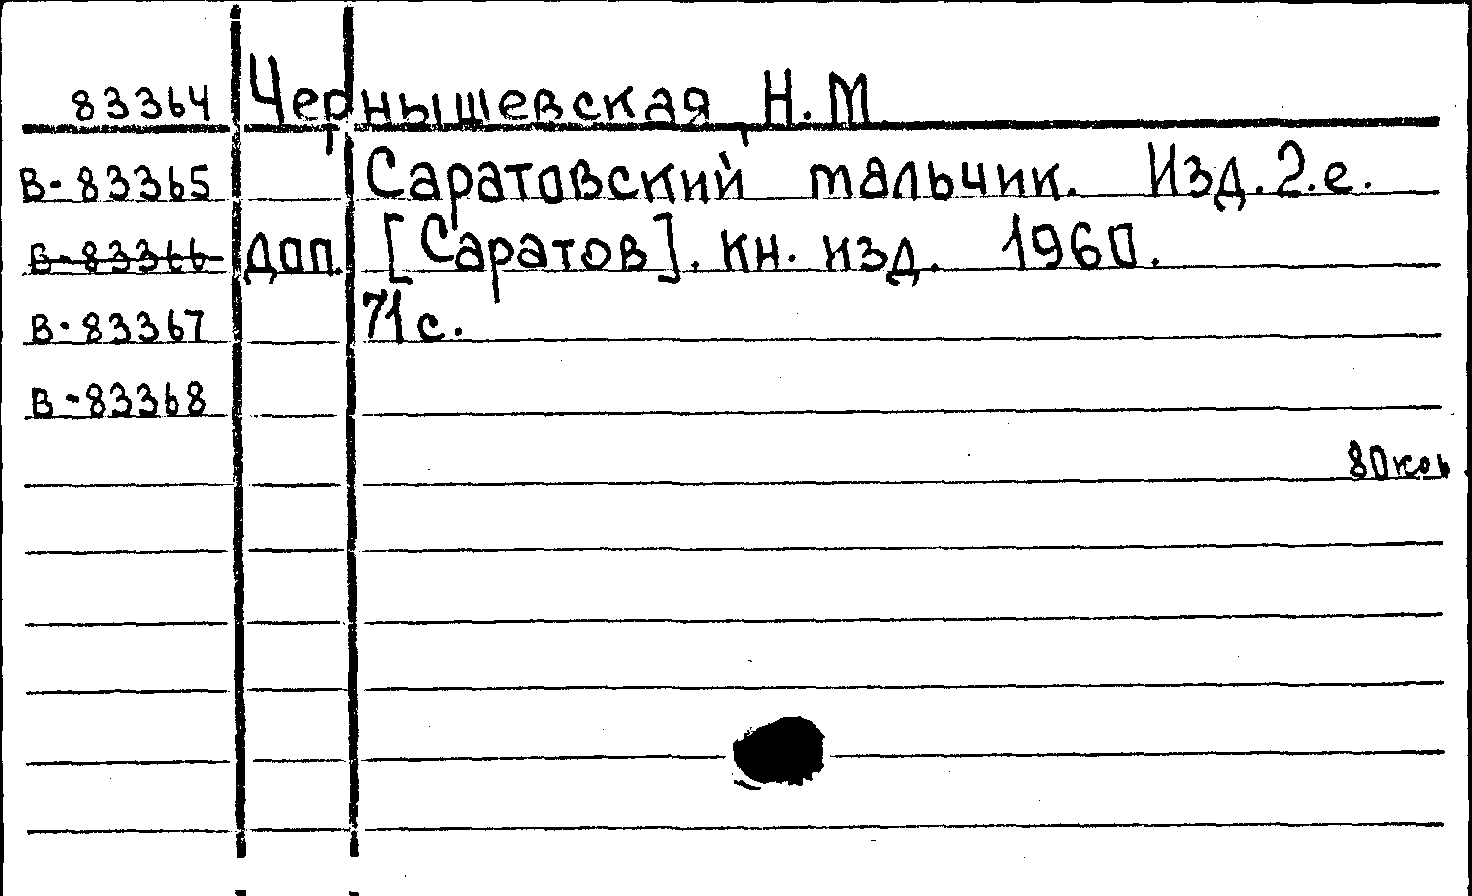 83364 Чернышевская, Н.М
В-83365 Саратовский мальчик. Изд.2.е.
В-83366 доп. [Саратов]. кн. изд. 1960.
В-83367 71с.
В-83368
80коп.